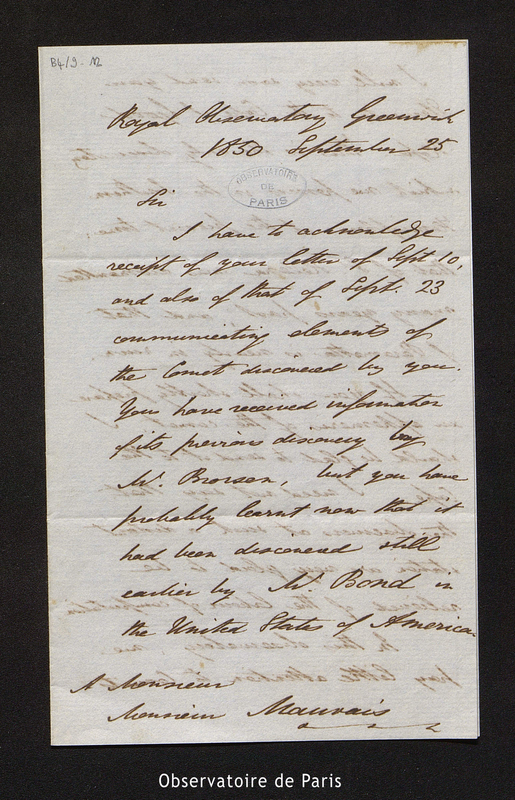 B4/9 - 12
Royal Observatory Greenwich
1850 September 25
OBSERVATOIRE
DE
PARIS
Sir
I have to acknowledge
receipt of your letter of Sept. 10,
and also of that of Sept. 23
communicating elements of
the Comet discovered by you.
You have received information
of its previous discovery by
Mr. Brorsen, but you have
probably learnt now that it
had been discovered still
earlier by Mr. Bond in
the United States of America.
A Monsieur
Monsieur Mauvais
Observatoire de Paris